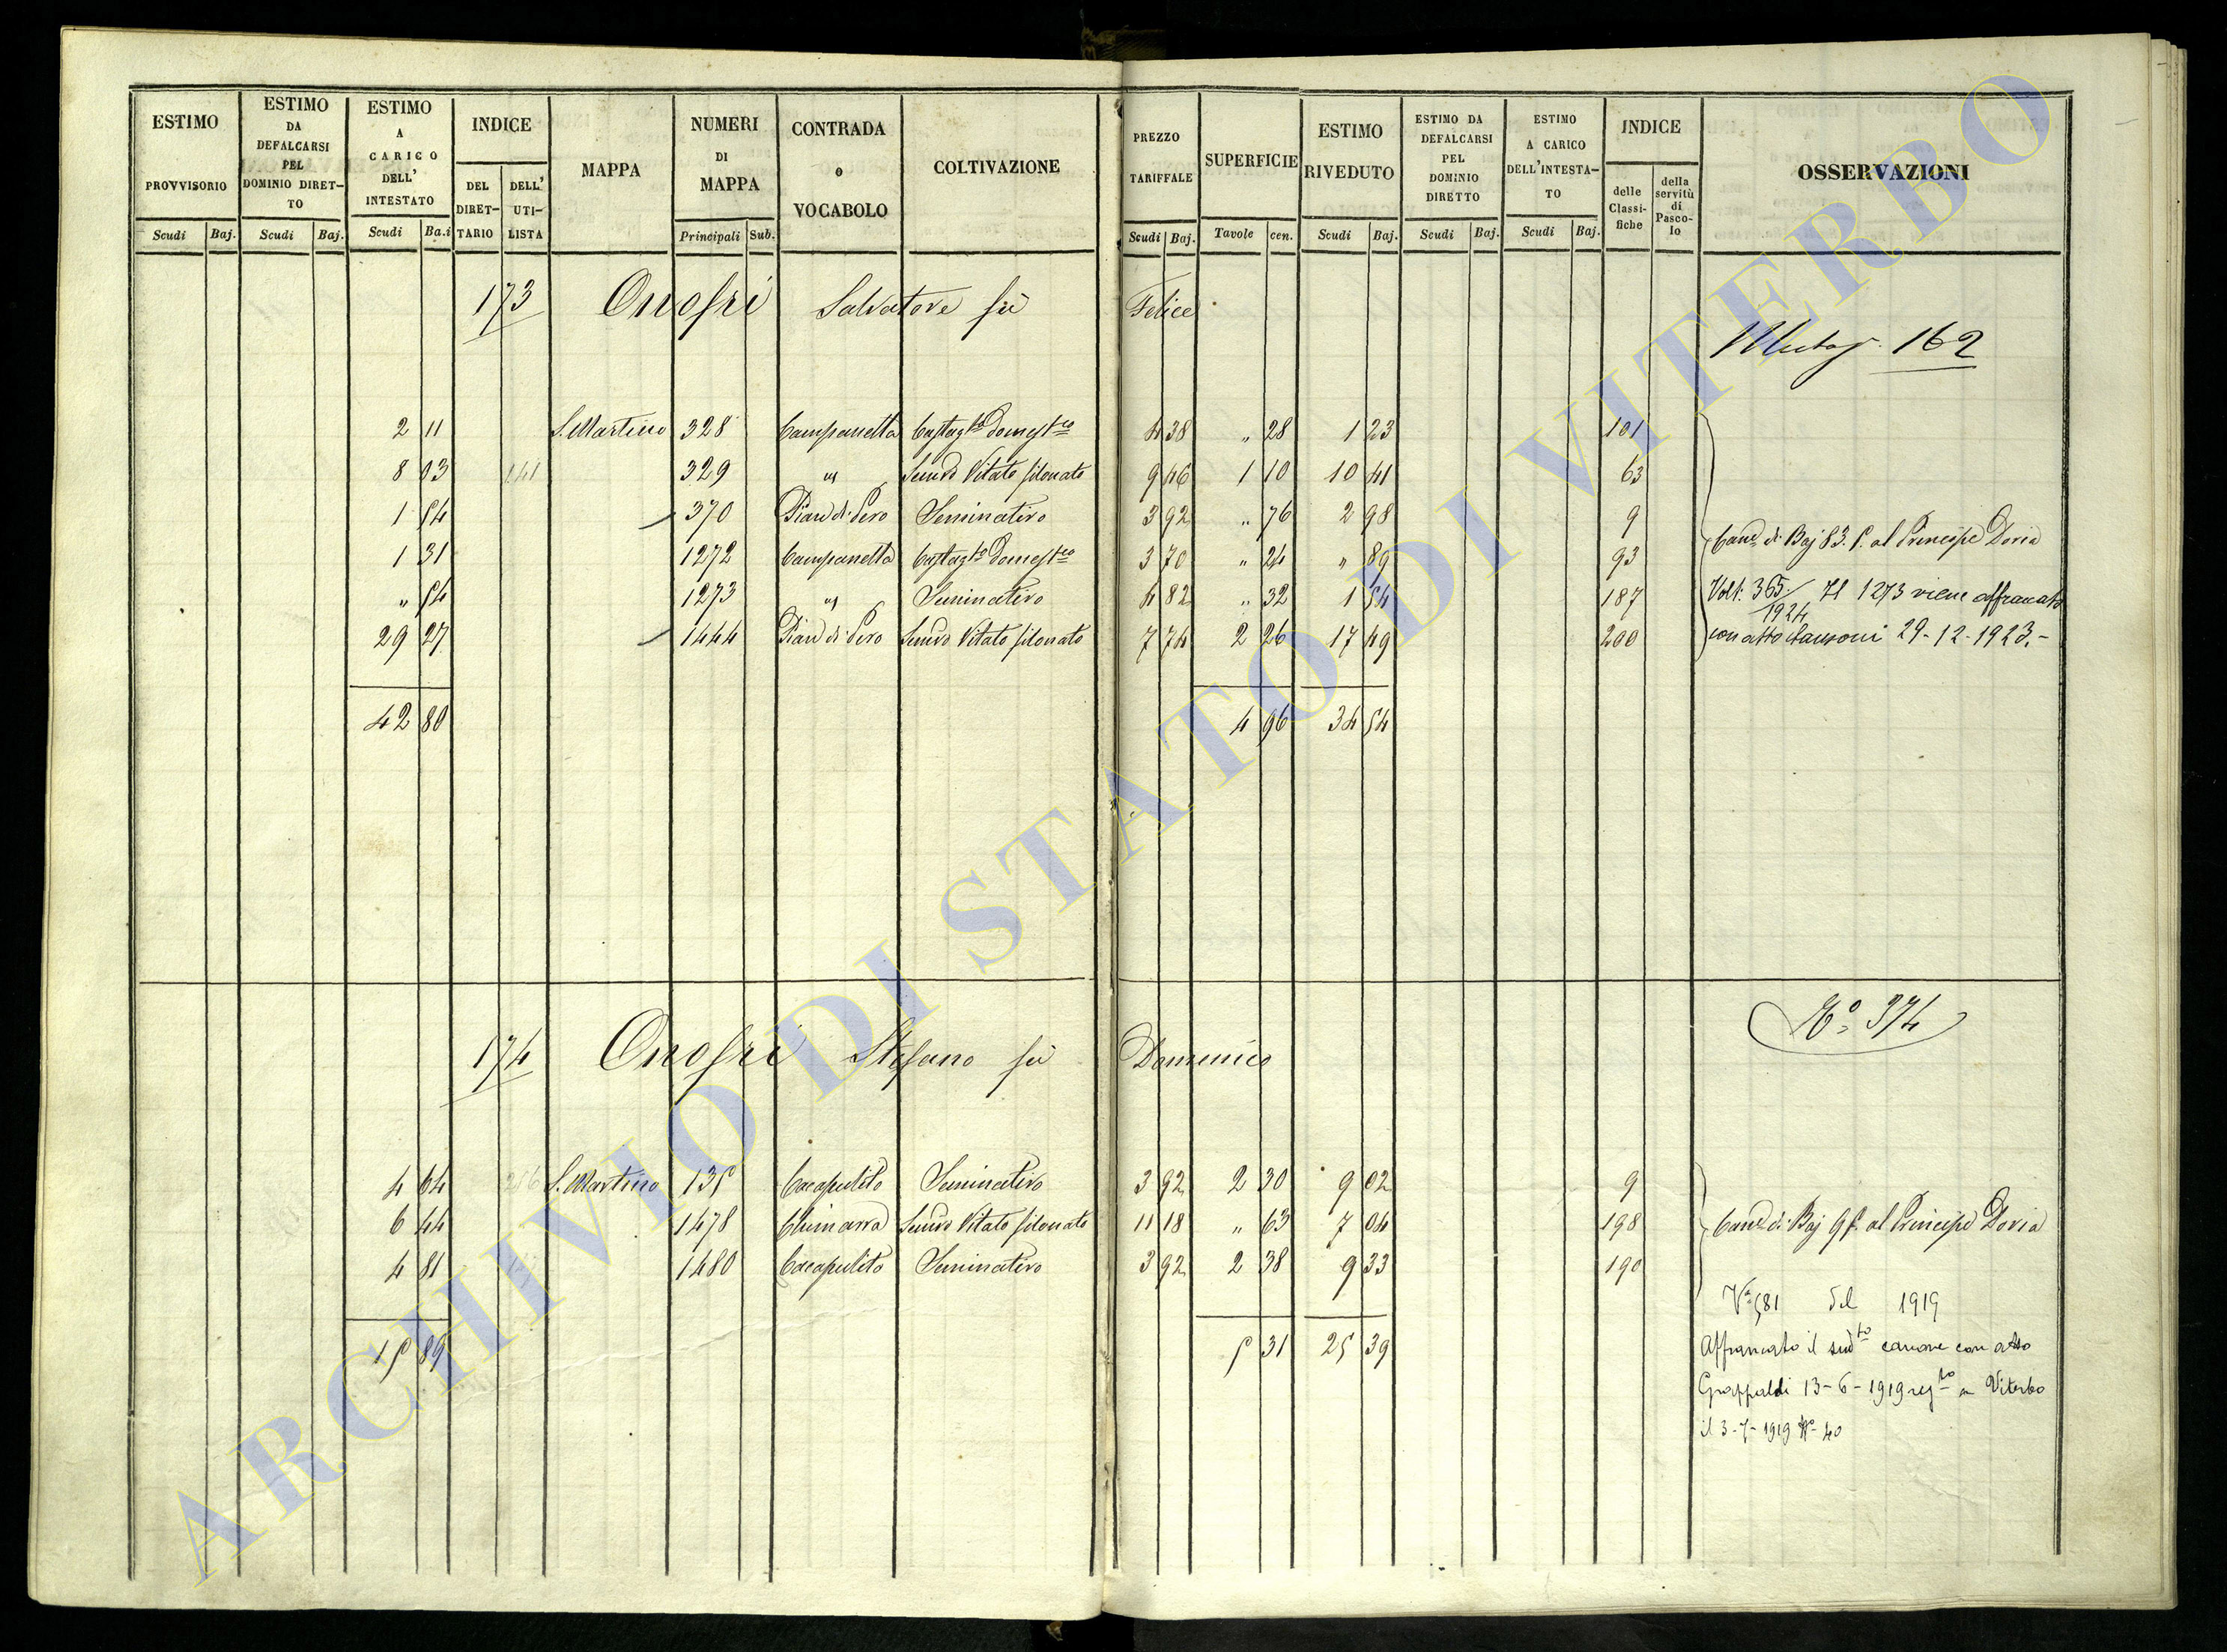 ESTIMO PROVVISORIO
ESTIMO DA DEFALCARSI PEL DOMINIO DIRET-TO
ESTIMO A CARICO DELL' INTESTATO
INDICE
DEL DIRET-TARIO
DELL' UTI-LISTA
MAPPA
NUMERI DI MAPPA
CONTRADA o VOCABOLO
COLTIVAZIONE
PREZZO TARIFFALE
SUPERFICIE
ESTIMO RIVEDUTO
ESTIMO DA DEFALCARSI PEL DOMINIO DIRETTO
ESTIMO A CARICO DELL'INTESTA-TO
INDICE
delle Classi-fiche
della servitù di Pasco-lo
OSSERVAZIONI
Scudi Baj. Scudi Baj. Scudi Ba.i Principali Sub. Scudi Baj. Tavole cen. Scudi Baj. Scudi Baj. Scudi Baj.
173 Onofri Salvatore fù Felice
Mutaz. 162
2 11 S. Martino 328 Campanella Castag.to Domest.co 4 38 " 28 1 23 101
8 03 141 329 " Semivo Vitato filonato 9 46 1 10 10 41 63
1 54 370 Pian di Pero Seminativo 3 92 " 76 2 98 9
1 31 1272 Campanella Castag.to Domest.co 3 70 " 24 " 89 93
" 54 1273 " Seminativo 4 82 " 32 1 54 187
29 27 1444 Pian di Pero Semivo Vitato filonato 7 74 2 26 17 49 200
Cane di Baj 83. 5. al Principe Doria
Volt. 365/1924 Il 1273 viene affrancato
con atto 29-12-1923.-
42 80 4 96 34 54
No. 374
174 Onofri Stefano fù Domenico
4 64 S. Martino 135 Cacapulito Seminativo 3 92 2 30 9 02 9
6 44 1478 Chimarra Semivo Vitato filonato 11 18 " 63 7 04 198
4 81 1480 Cacapulito Seminativo 3 92 2 38 9 33 190
Cane di Baj 95. al Principe Doria
15 89 5 31 25 39
Va 581 del 1919
Affrancato il sudto canone con atto
Grappaldi 13-6-1919 regto a Viterbo
il 3-7-1919 No 40
ARCHIVIO DI STATO DI VITERBO